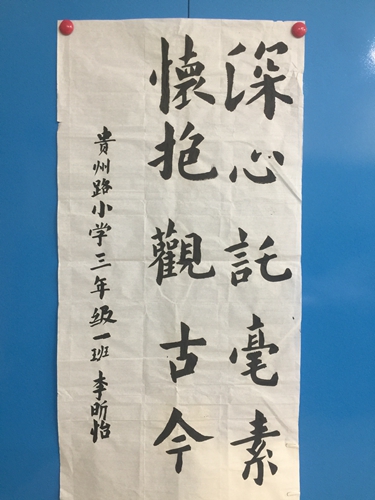 深心託毫素
懷抱觀古今
貴州路小学三年级一班李昕怡